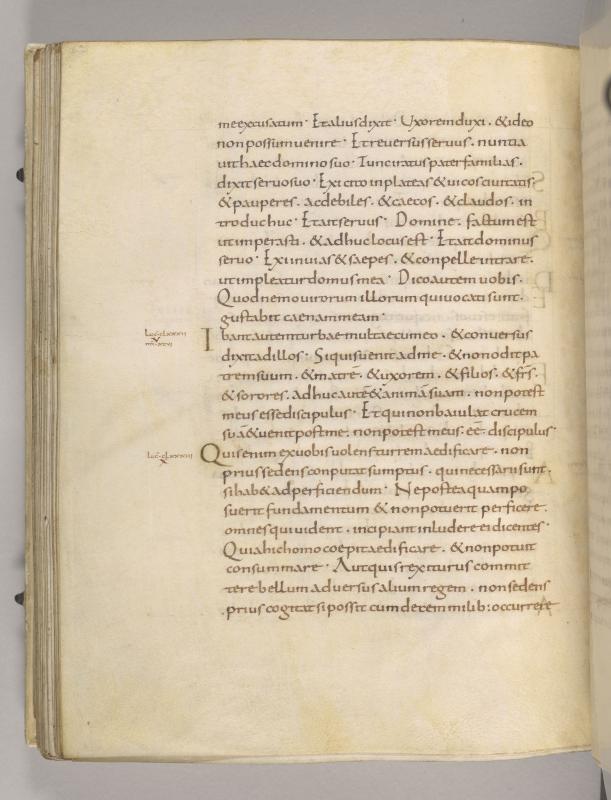 me excusatum · Et alius dixit · Uxorem duxi · & ideo
non possum venire · Et reversus servus · nuntia
vit haec domino suo · Tunc iratus pater familias ·
dixit servo suo · Exi cito in plateas & vicos civitatis ·
& pauperes · ac debiles · & caecos · & claudos · in
troduc huc · Et ait servus · Domine · factum est
ut imperasti · & adhuc locus est · Et ait dominus
servo · Exi in vias & saepes · & conpelle intrare ·
ut impleatur domus mea · Dico autem vobis ·
Quod nemo virorum illorum qui vocati sunt ·
gustabit caenam meam ·
Ibant autem turbae multae cum eo · & conversus
dixit ad illos · Si quis venit ad me · & non odit pa
trem suum · & matrē · & uxorem · & filios · & frs̄ ·
& sorores · adhuc autē & animā suam · non potest
meus esse discipulus · Et qui non baiulat crucem
suā & venit post me · non potest meus · eē · discipulus ·
Quis enim ex vobis volens turrem aedificare · non
prius sedens conputat sumptus · qui necessarii sunt ·
si hab& ad perficiendum · Ne postea quam po
suerit fundamentum & non potuerit perficere ·
omnes qui vident · incipiant inludere ei dicentes ·
Quia hic homo coepit aedificare · & non potuit
consummare · Aut quis rex iturus commit
tere bellum adversus alium regem · non sedens
prius cogitat si possit cum decem milib: occurrere